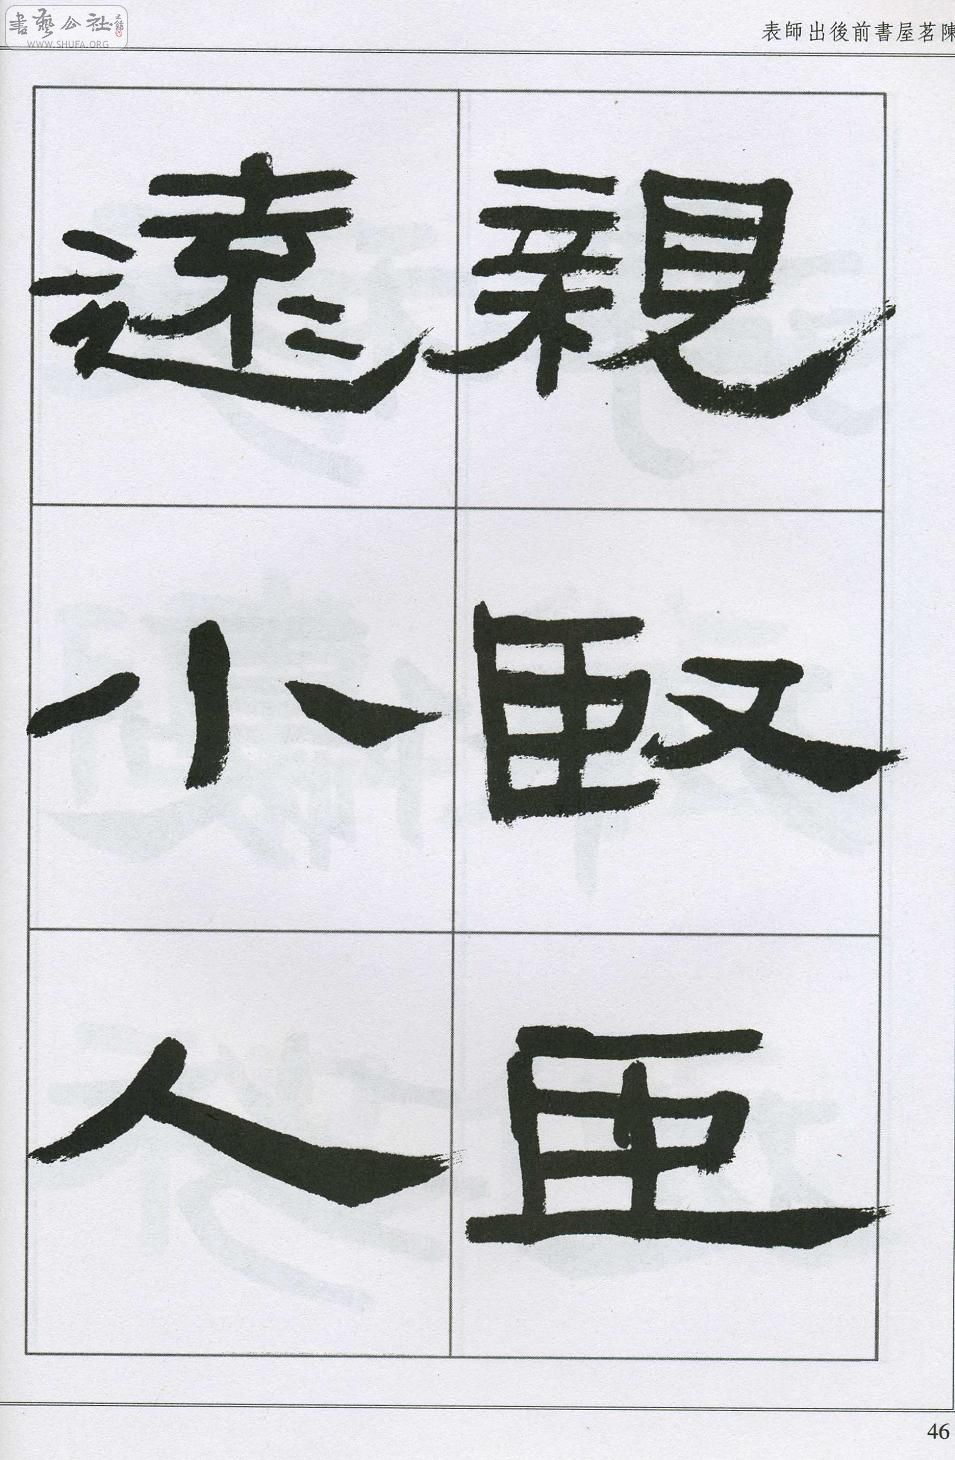 書藝公社
WWW.SHUFA.ORG
陳茗屋書前後出師表
親臤臣
遠小人
46